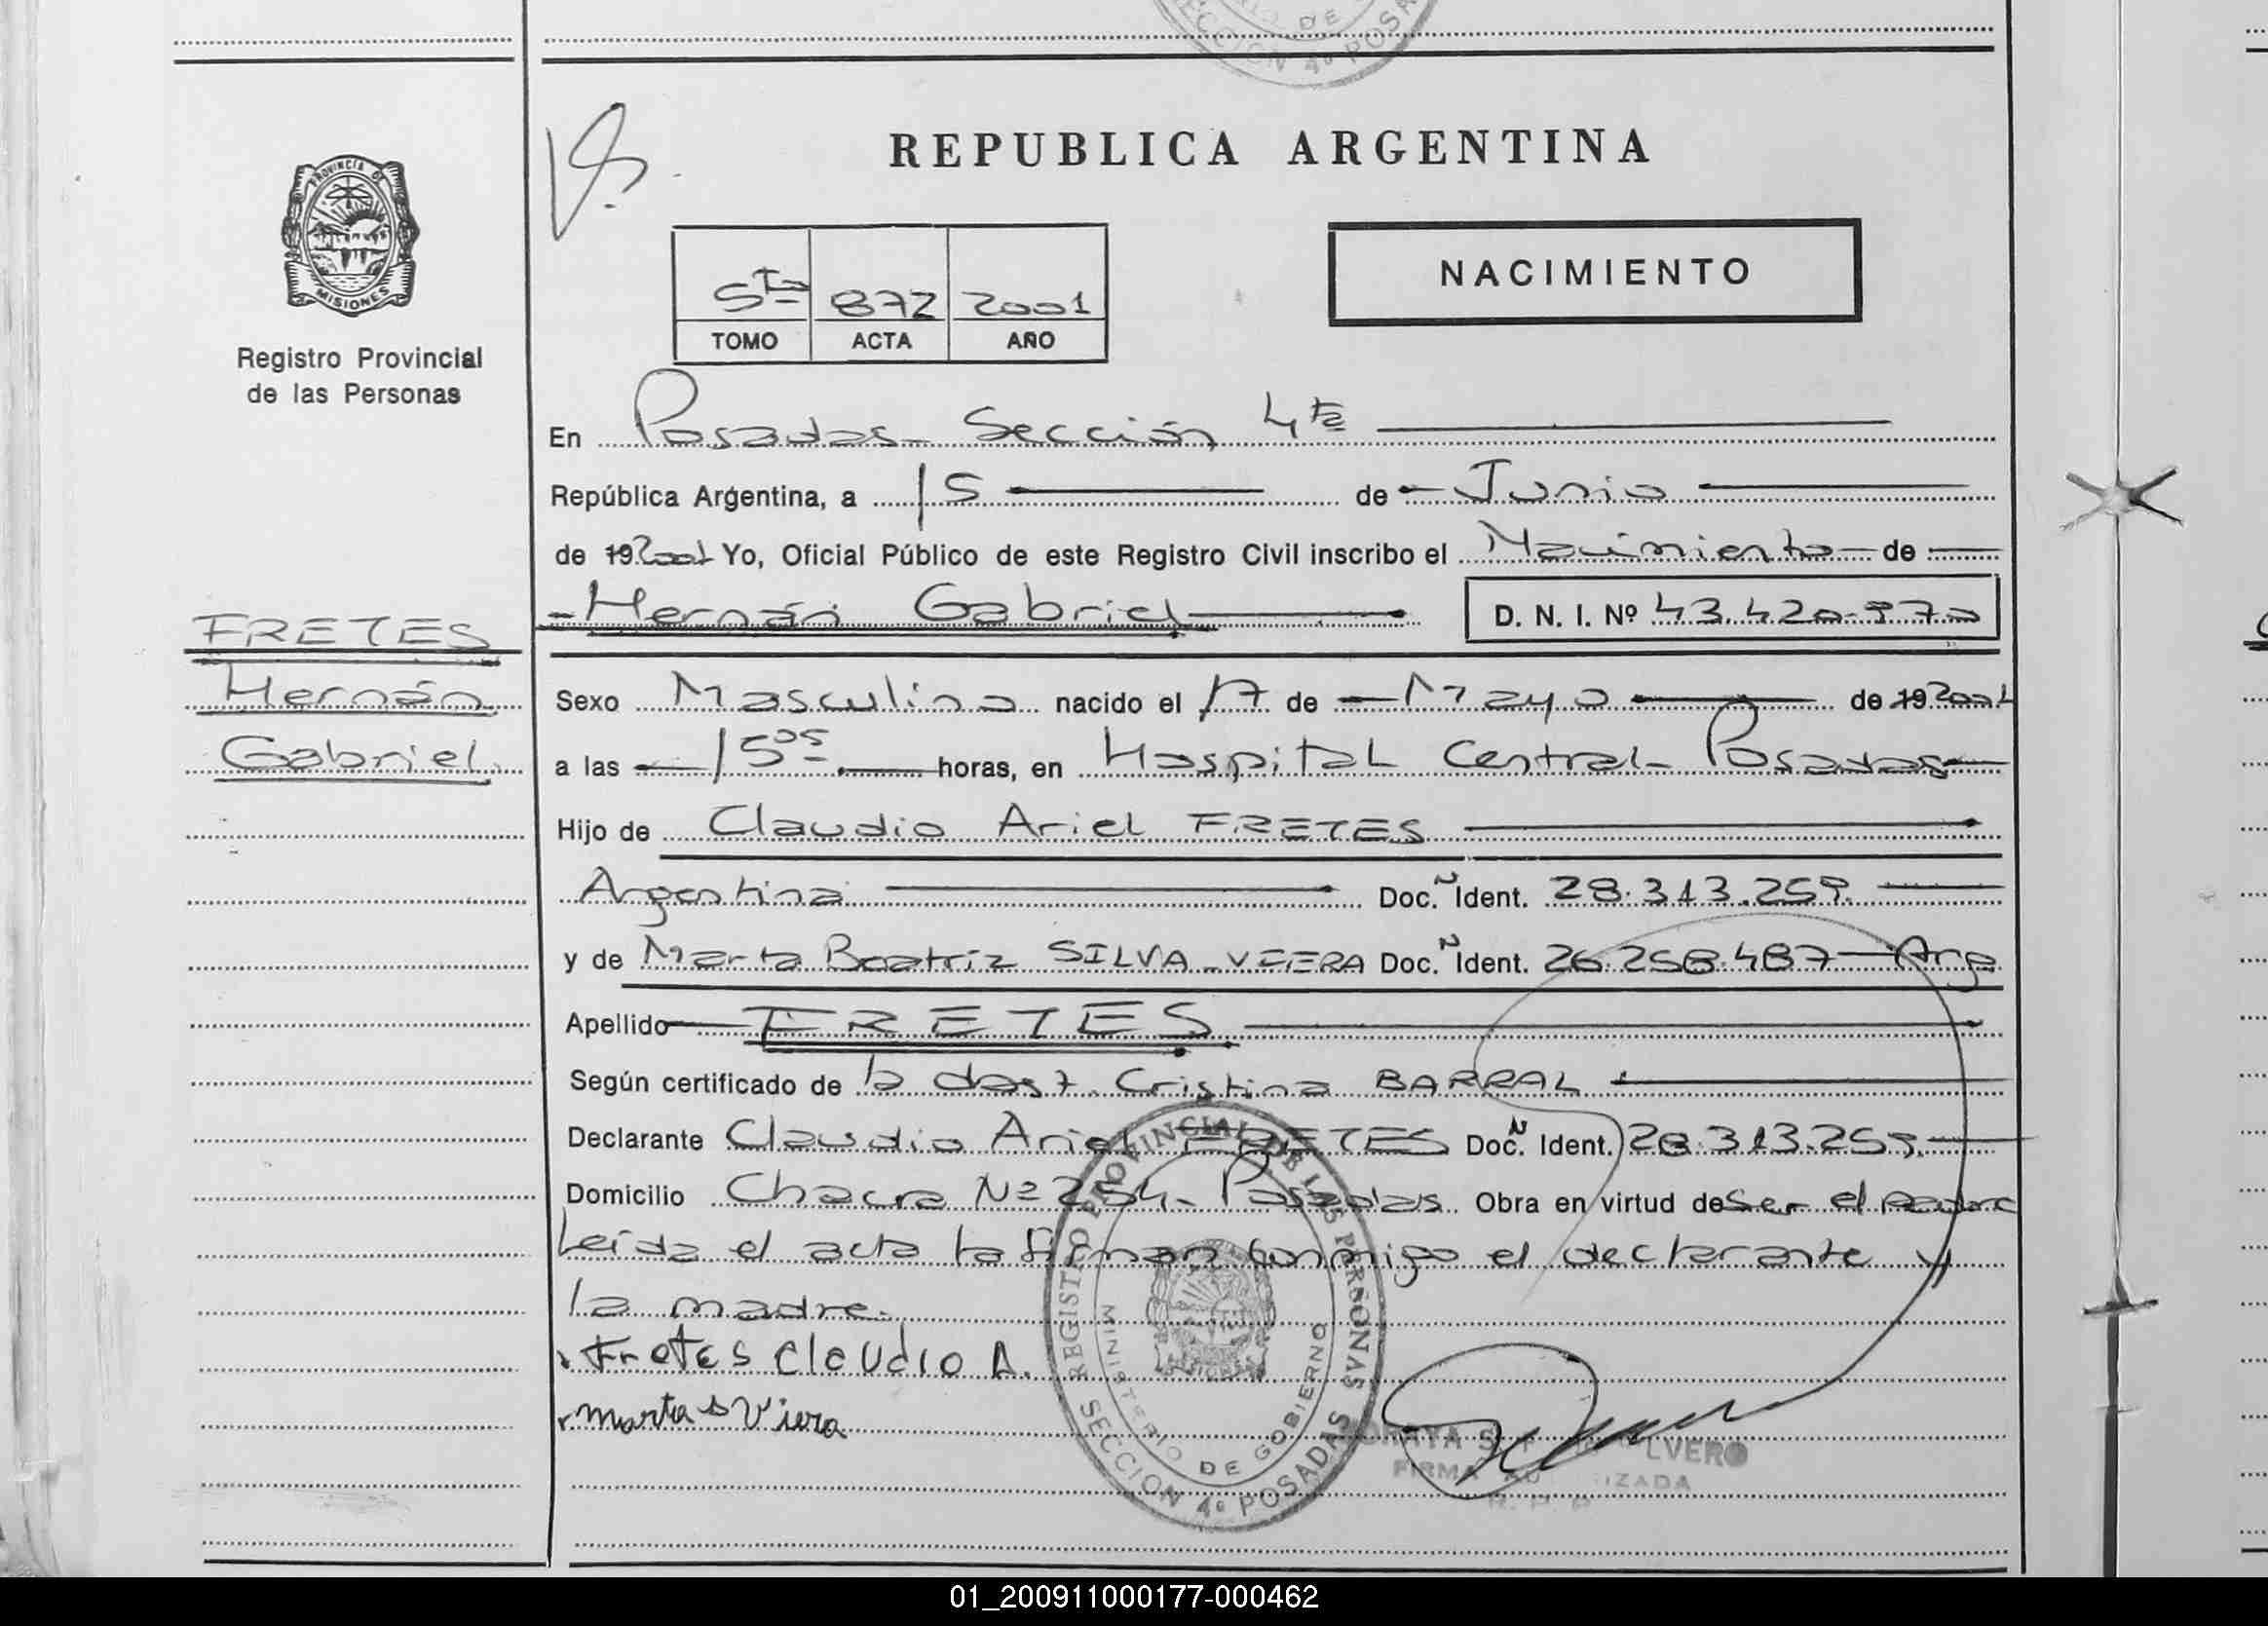 DE
SECCION 4º POSA
PROVINCIA DE
MISIONES
Registro Provincial
de las Personas
FRETES
Hernán
Gabriel
REPUBLICA ARGENTINA
NACIMIENTO
5ta 872 2001
TOMO ACTA AÑO
En Posadas - Sección 4ta
República Argentina, a 15 de Junio
de 19 2001 Yo, Oficial Público de este Registro Civil inscribo el Nacimiento de
Hernán Gabriel D. N. I. Nº 43.420.970
Sexo Masculino nacido el 17 de Mayo de 19 2001
a las 15 05 horas, en Hospital Central - Posadas
Hijo de Claudio Ariel FRETES
Argentina Doc. N Ident. 28.313.259.
y de Marta Beatriz SILVA - VIERA Doc. N Ident. 26.258.487 - Arg
Apellido FRETES
Según certificado de la obst. Cristina BARRAL
Declarante Claudio Ariel FRETES Doc. N Ident. 28.313.259.
Domicilio Chacra Nº 254 - Posadas. Obra en virtud de ser el padre
Leída el acta la firman conmigo el declarante y
la madre.
Fretes Claudio A.
Marta S Viera
REGISTRO PROVINCIAL DE LAS PERSONAS
MINISTERIO DE GOBIERNO
SECCION 4º POSADAS
LVERO
FIRMA
01_200911000177-000462